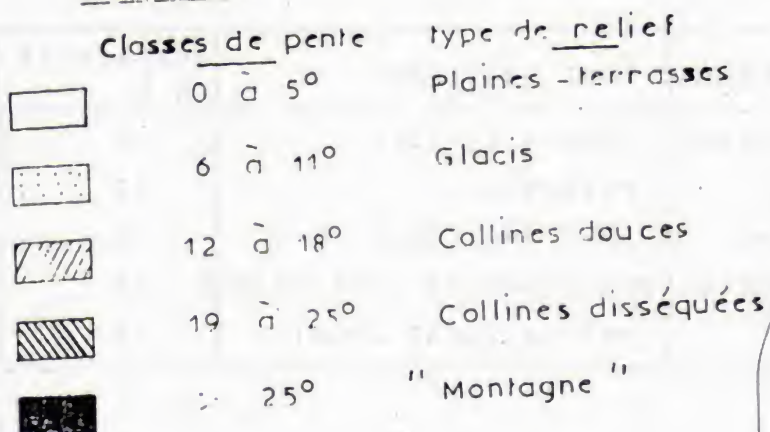 Classes de pente type de relief
0 à 5° Plaines - terrasses
6 à 11° Glacis
12 à 18° Collines douces
19 à 25° Collines disséquées
25° "Montagne"